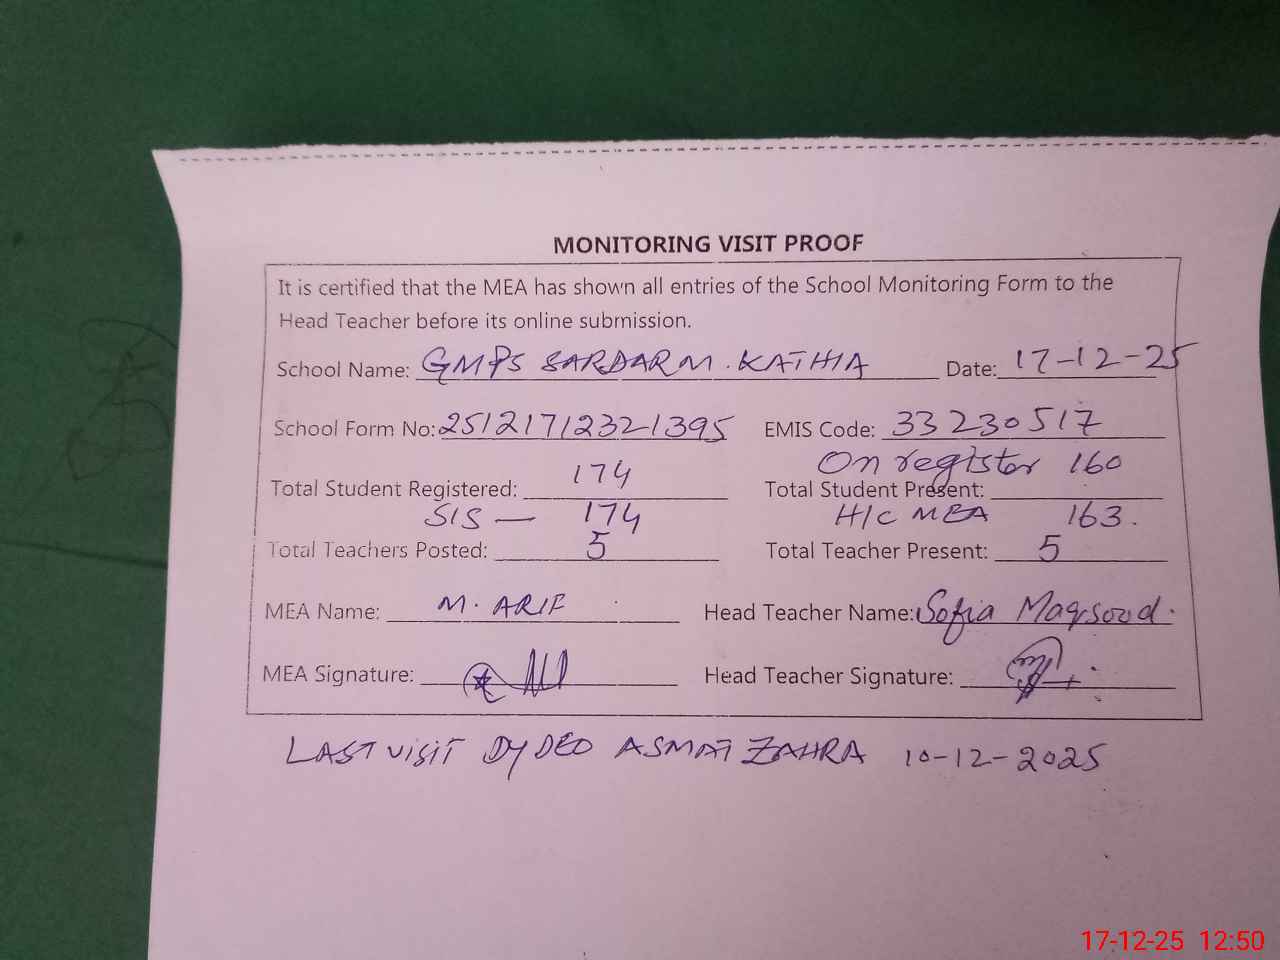 MONITORING VISIT PROOF
It is certified that the MEA has shown all entries of the School Monitoring Form to the
Head Teacher before its online submission.
School Name: GMPS SARDAR M. KATHIA Date: 17-12-25
School Form No: 25121712321395 EMIS Code: 33230517
174 On register 160
Total Student Registered: Total Student Present:
SIS — 174 H/C MEA 163.
Total Teachers Posted: 5 Total Teacher Present: 5
MEA Name: M. ARIF Head Teacher Name: Sofia Maqsood.
MEA Signature: Head Teacher Signature:
LAST VISIT DY DEO ASMAT ZAHRA 10-12-2025
17-12-25 12:50